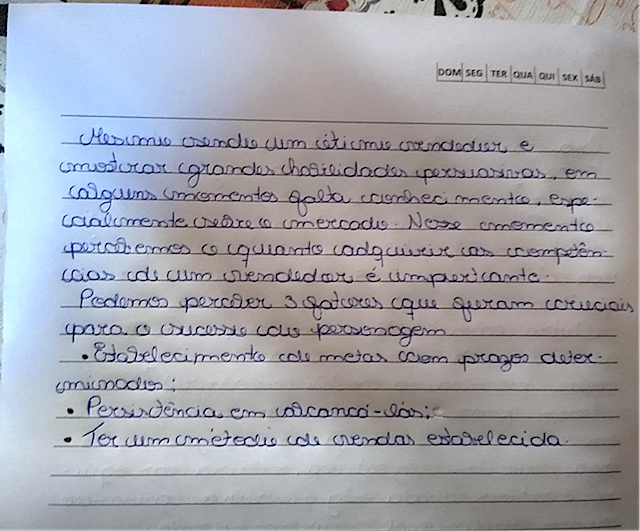 DOM SEG TER QUA QUI SEX SÁB
Mesmo sendo um ótimo vendedor e
mostrar grandes habilidades persuasivas, em
alguns momentos falta conhecimento, espe-
cialmente sobre o mercado. Nesse momento
percebemos o quanto adquirir as competên-
cias de um vendedor é importante.
Podemos perceber 3 fatores que foram cruciais
para o sucesso do personagem
• Estabelecimento de metas com prazos deter-
minados;
• Persistência em alcançá-las;
• Ter um método de vendas estabelecida.